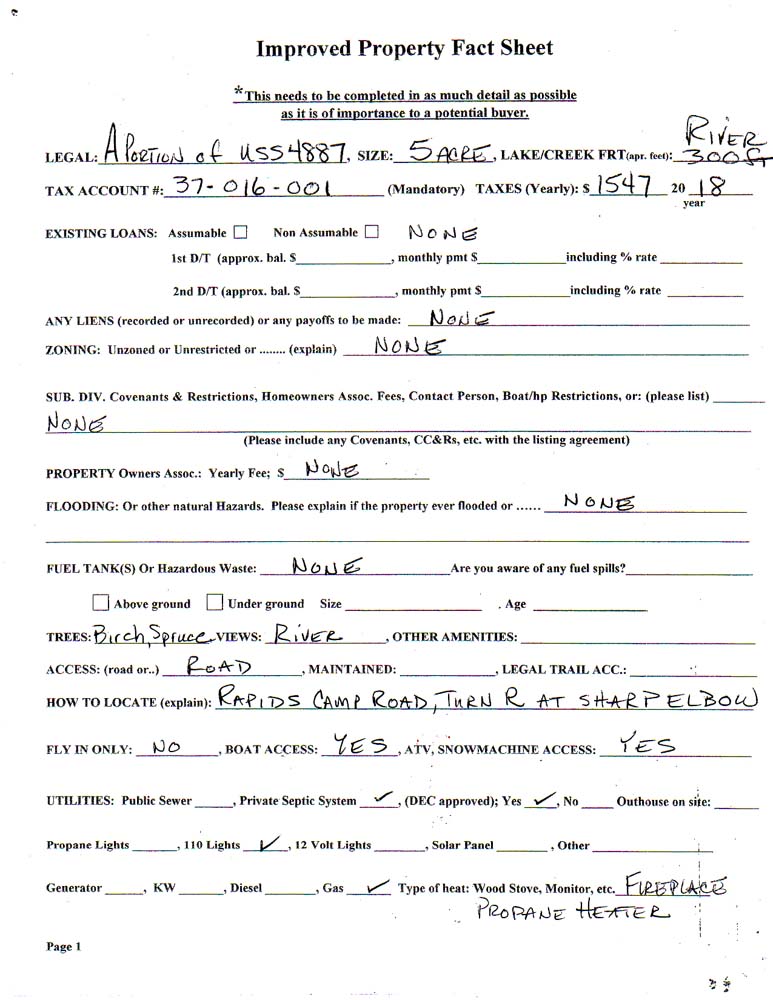 Improved Property Fact Sheet
*This needs to be completed in as much detail as possible
as it is of importance to a potential buyer.
LEGAL: A PORTION of USS4887, SIZE: 5 ACRE, LAKE/CREEK FRT(apr. feet): RIVER 300ft
TAX ACCOUNT #: 37-016-001 (Mandatory) TAXES (Yearly): $ 1547 20 18
year
EXISTING LOANS: Assumable ☐ Non Assumable ☐ NONE
1st D/T (approx. bal. $____________, monthly pmt $____________including % rate ____________
2nd D/T (approx. bal. $____________, monthly pmt $____________including % rate ____________
ANY LIENS (recorded or unrecorded) or any payoffs to be made: NONE
ZONING: Unzoned or Unrestricted or ........ (explain) NONE
SUB. DIV. Covenants & Restrictions, Homeowners Assoc. Fees, Contact Person, Boat/hp Restrictions, or: (please list) ________
NONE
(Please include any Covenants, CC&Rs, etc. with the listing agreement)
PROPERTY Owners Assoc.: Yearly Fee; $ NONE
FLOODING: Or other natural Hazards. Please explain if the property ever flooded or ...... NONE
FUEL TANK(S) Or Hazardous Waste: NONE Are you aware of any fuel spills?____________
☐ Above ground ☐ Under ground Size ____________ . Age ____________
TREES: Birch, Spruce VIEWS: RIVER, OTHER AMENITIES: ____________
ACCESS: (road or..) ROAD, MAINTAINED: ____________, LEGAL TRAIL ACC.: ____________
HOW TO LOCATE (explain): RAPIDS CAMP ROAD, TURN R AT SHARP ELBOW
FLY IN ONLY: NO, BOAT ACCESS: YES, ATV, SNOWMACHINE ACCESS: YES
UTILITIES: Public Sewer _____, Private Septic System ✓, (DEC approved); Yes ✓, No _____ Outhouse on site: ______
Propane Lights ______, 110 Lights ✓, 12 Volt Lights ______, Solar Panel ______, Other ____________
Generator _____, KW ______, Diesel ______, Gas ✓ Type of heat: Wood Stove, Monitor, etc. FIREPLACE
PROPANE HEATER
Page 1